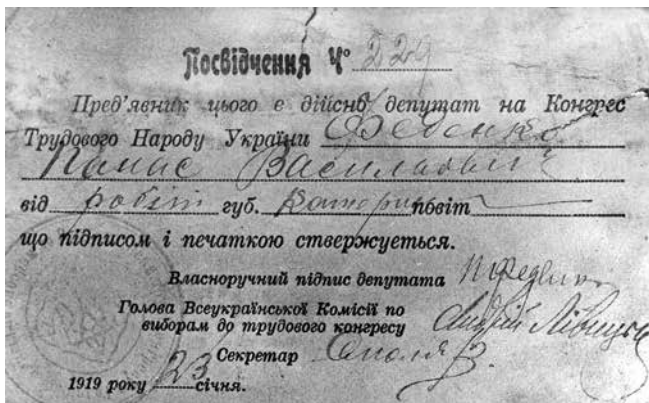 Посвідчення Ч° 229
Пред'явник цього є дійсно депутат на Конгрес
Трудового Народу України Феденко
Панас Васильович
від робіт губ. Катерин повіт
що підписом і печаткою стверджується.
Власноручний підпис депутата П Феденко
Голова Всеукраїнської Комісії по
виборам до трудового конгресу Андрій Лівицьк
Секретар
1919 року 23 січня.